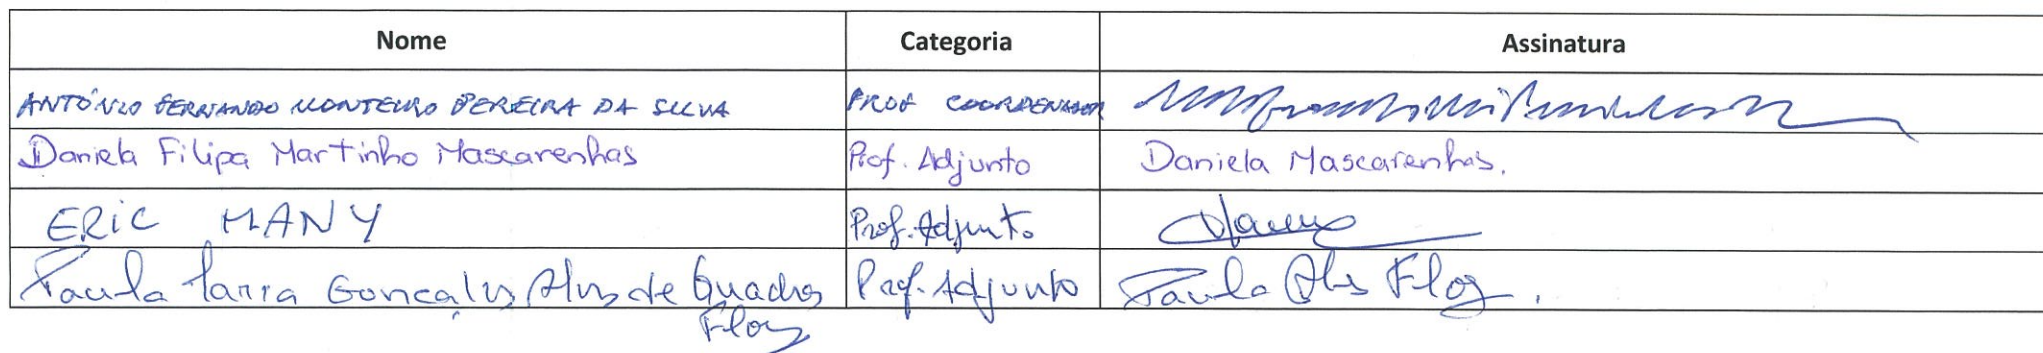 Nome Categoria Assinatura
ANTÓNIO FERNANDO MONTEIRO PEREIRA DA SILVA PROF COORDENADOR
Daniela Filipa Martinho Mascarenhas Prof. Adjunto Daniela Mascarenhas.
ERIC MANY Prof. Adjunto
Paula Maria Gonçalves Alves de Quadros Prof. Adjunto Paula Alves Flores.
Flores